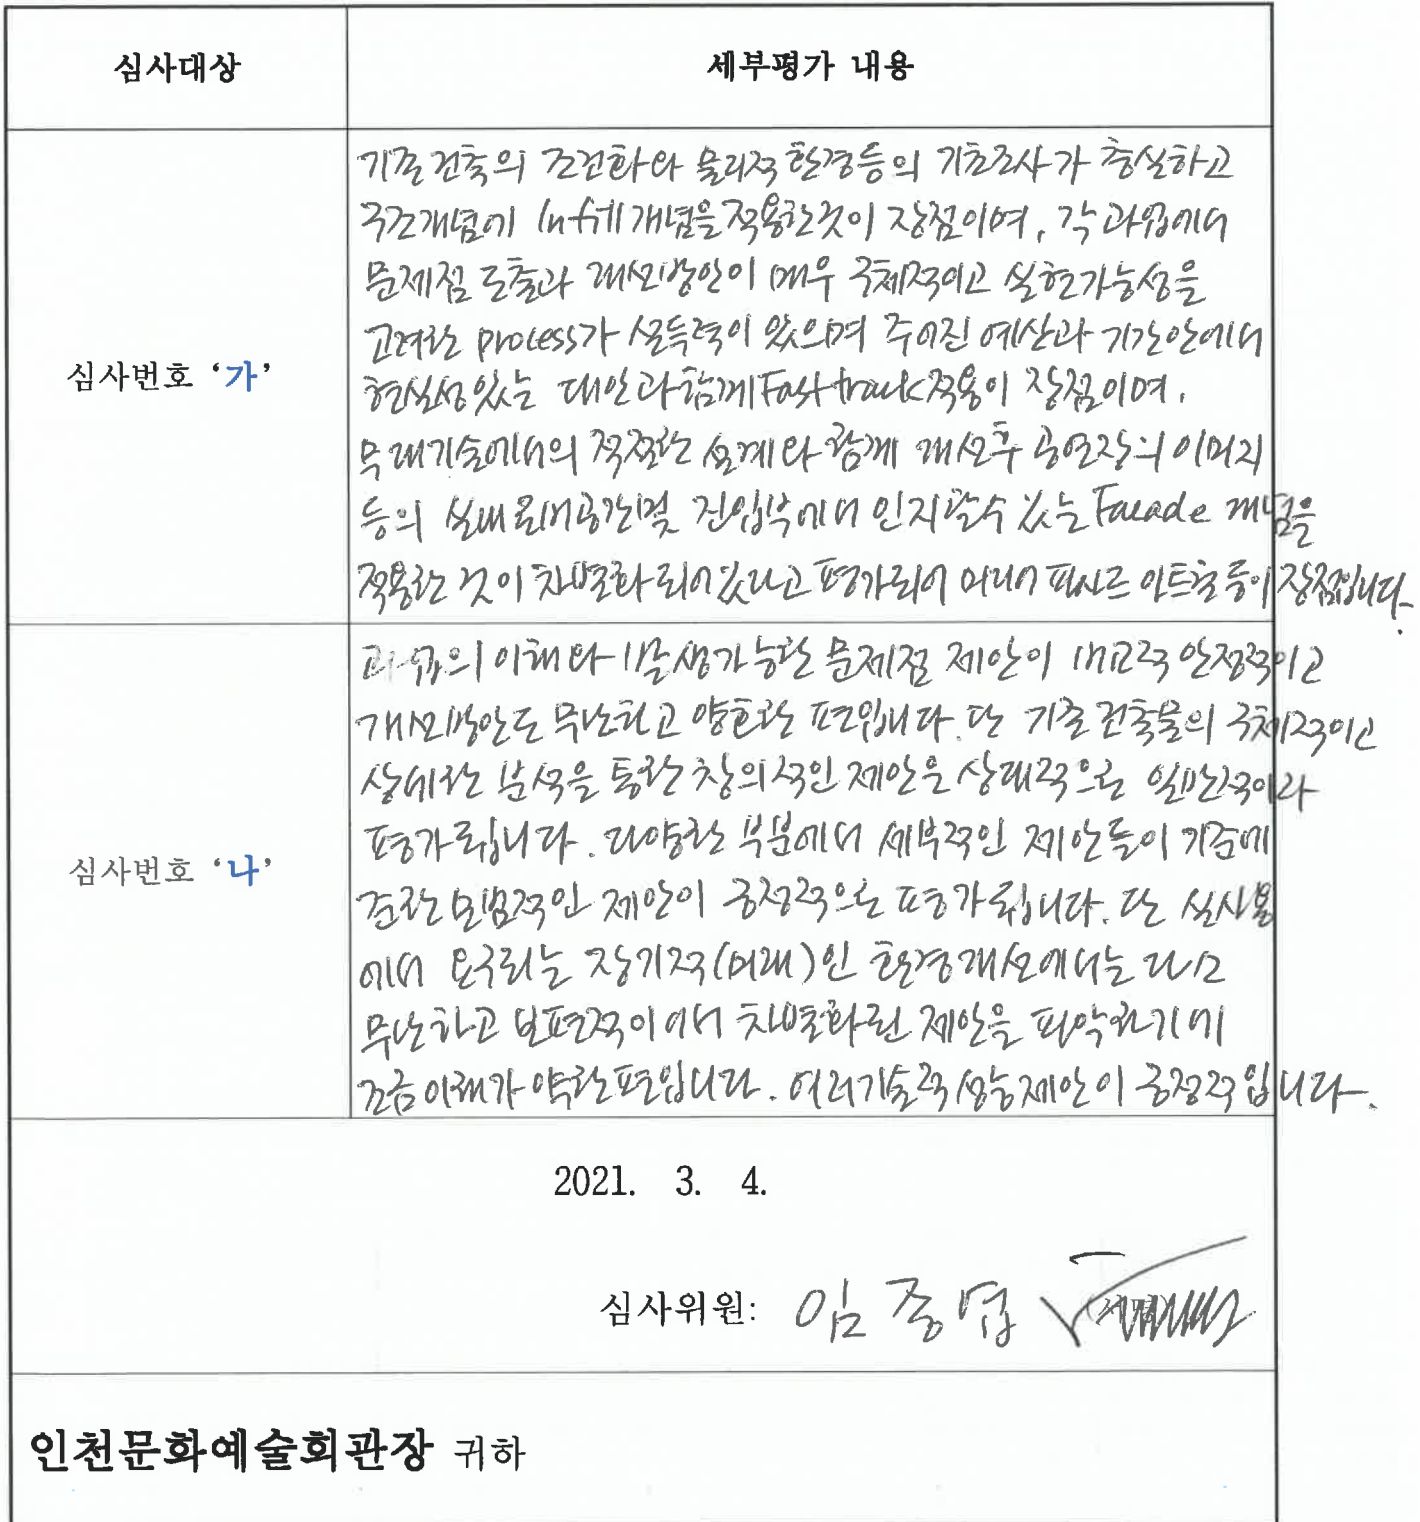 심사대상
세부평가 내용
심사번호 '가'
기존 건축의 조건화와 물리적 환경등의 기초조사가 충실하고
구조개념에 Infill 개념을 적용한것이 장점이며, 각 과업에서
문제점 도출과 개선방안이 매우 구체적이고 실현가능성을
고려한 process가 설득력이 있으며 주어진 예산과 기간안에서
현실성있는 대안과 함께 Fast track 적용이 장점이며.
무대기술에서의 적절한 설계와 함께 개선후 공연장의 이미지
등의 실내 로비공간및 진입부에서 인지할수 있는 Facade 개념을
적용한 것이 차별화 되어있다고 평가되어 미디어 파사드 아트홀 등이 장점입니다.
심사번호 '나'
과업의 이해와 발생가능한 문제점 제안이 비교적 안정적이고
개선방안도 무난하고 양호한 편입니다. 단 기존 건축물의 구체적이고
상세한 분석을 통한 창의적인 제안은 상대적으로 일반적이라
평가됩니다. 다양한 부분에서 세부적인 제안들이 기준에
준한 모범적인 제안이 긍정적으로 평가됩니다. 단 실사용
에서 요구되는 장기적(미래)인 환경개선에서는 다소
무난하고 보편적이어서 차별화된 제안을 파악하기에
조금 이해가 약한편입니다. 여러기술적 성능제안이 긍정적입니다.
2021. 3. 4.
심사위원: 임종엽 (서명)
인천문화예술회관장 귀하